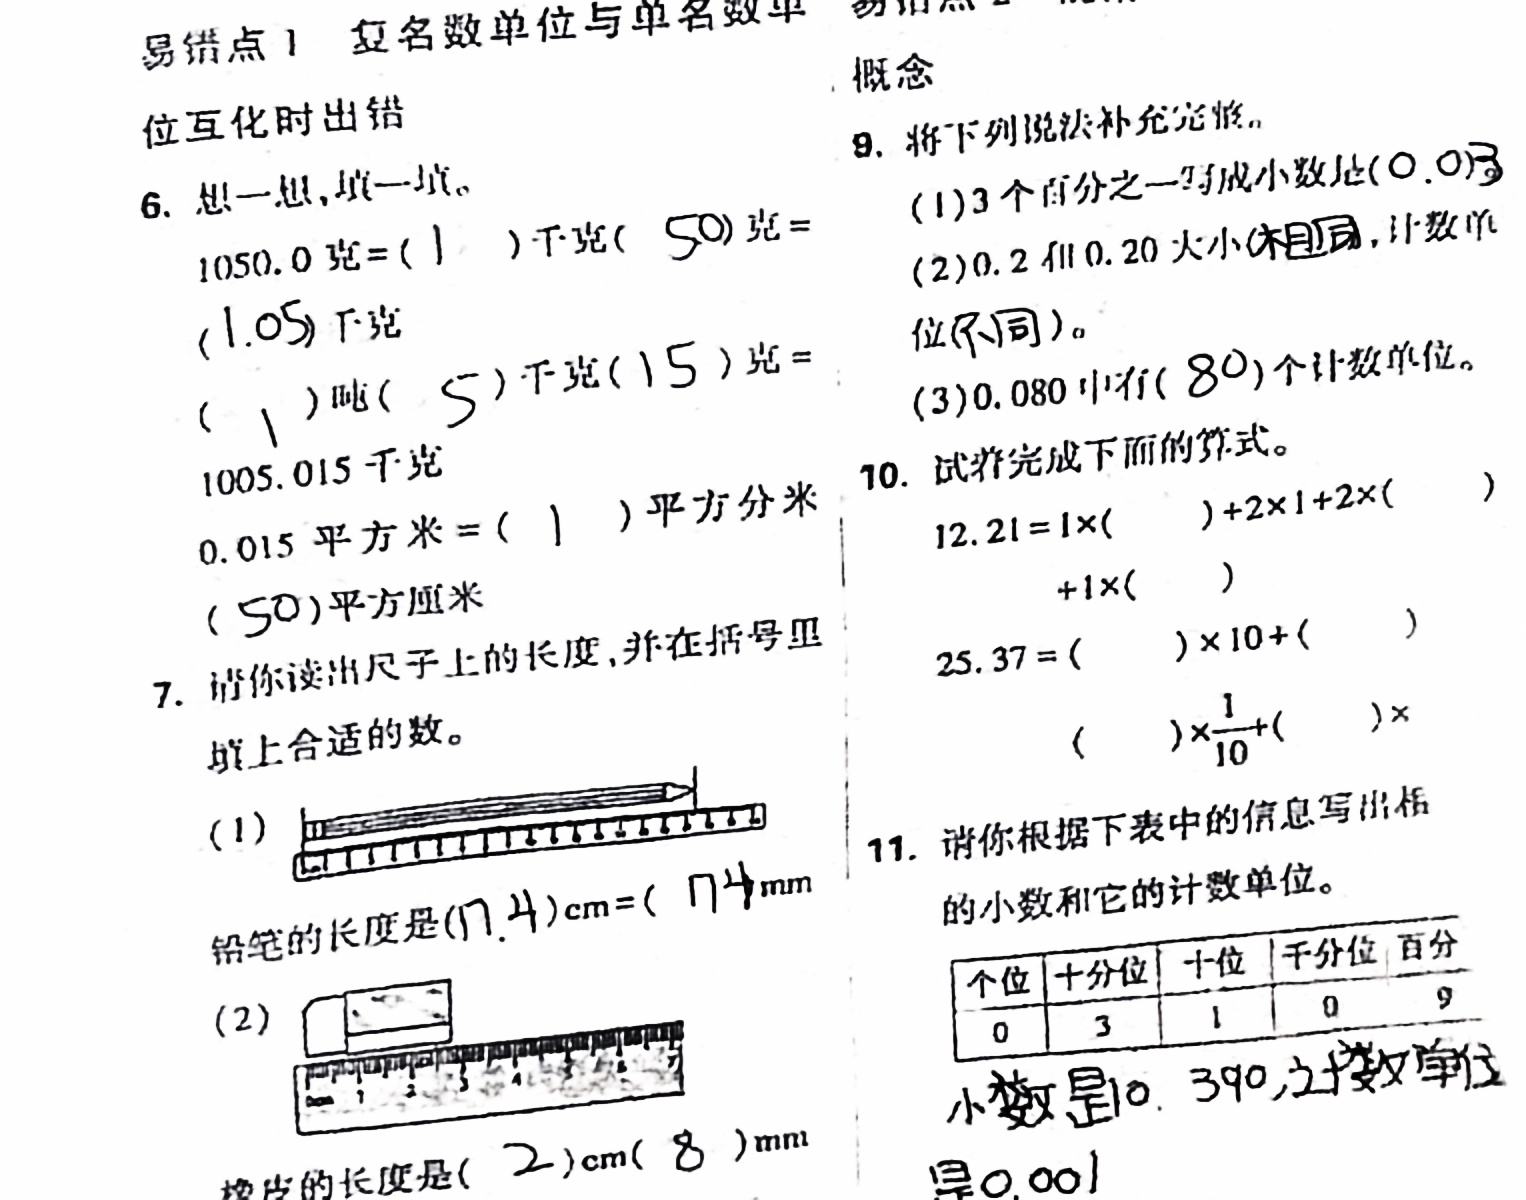 易错点1 复名数单位与单名数单
位互化时出错
6. 想一想,填一填。
1050.0 克=( 1 )千克( 50 )克=
(1.05)千克
( 1 )吨( 5 )千克( 15 )克=
1005.015 千克
0.015 平方米=( 1 )平方分米
( 50 )平方厘米
7. 请你读出尺子上的长度,并在括号里
填上合适的数。
(1)
铅笔的长度是(17.4)cm=( 174 )mm
(2)
0cm 1 2 3 4 5 6 7
橡皮的长度是( 2 )cm( 8 )mm
易错点2
概念
9. 将下列说法补充完整。
(1)3个百分之一写成小数是(0.03)。
(2)0.2和0.20大小(相同),计数单
位(不同)。
(3)0.080中有( 80 )个计数单位。
10. 试着完成下面的算式。
12.21=1×( )+2×1+2×( )
+1×( )
25.37=( )×10+( )
( )×1/10+( )×
11. 请你根据下表中的信息写出相
的小数和它的计数单位。
个位 十分位 十位 千分位 百分
0 3 1 0 9
小数是10.390,计数单位
是0.001